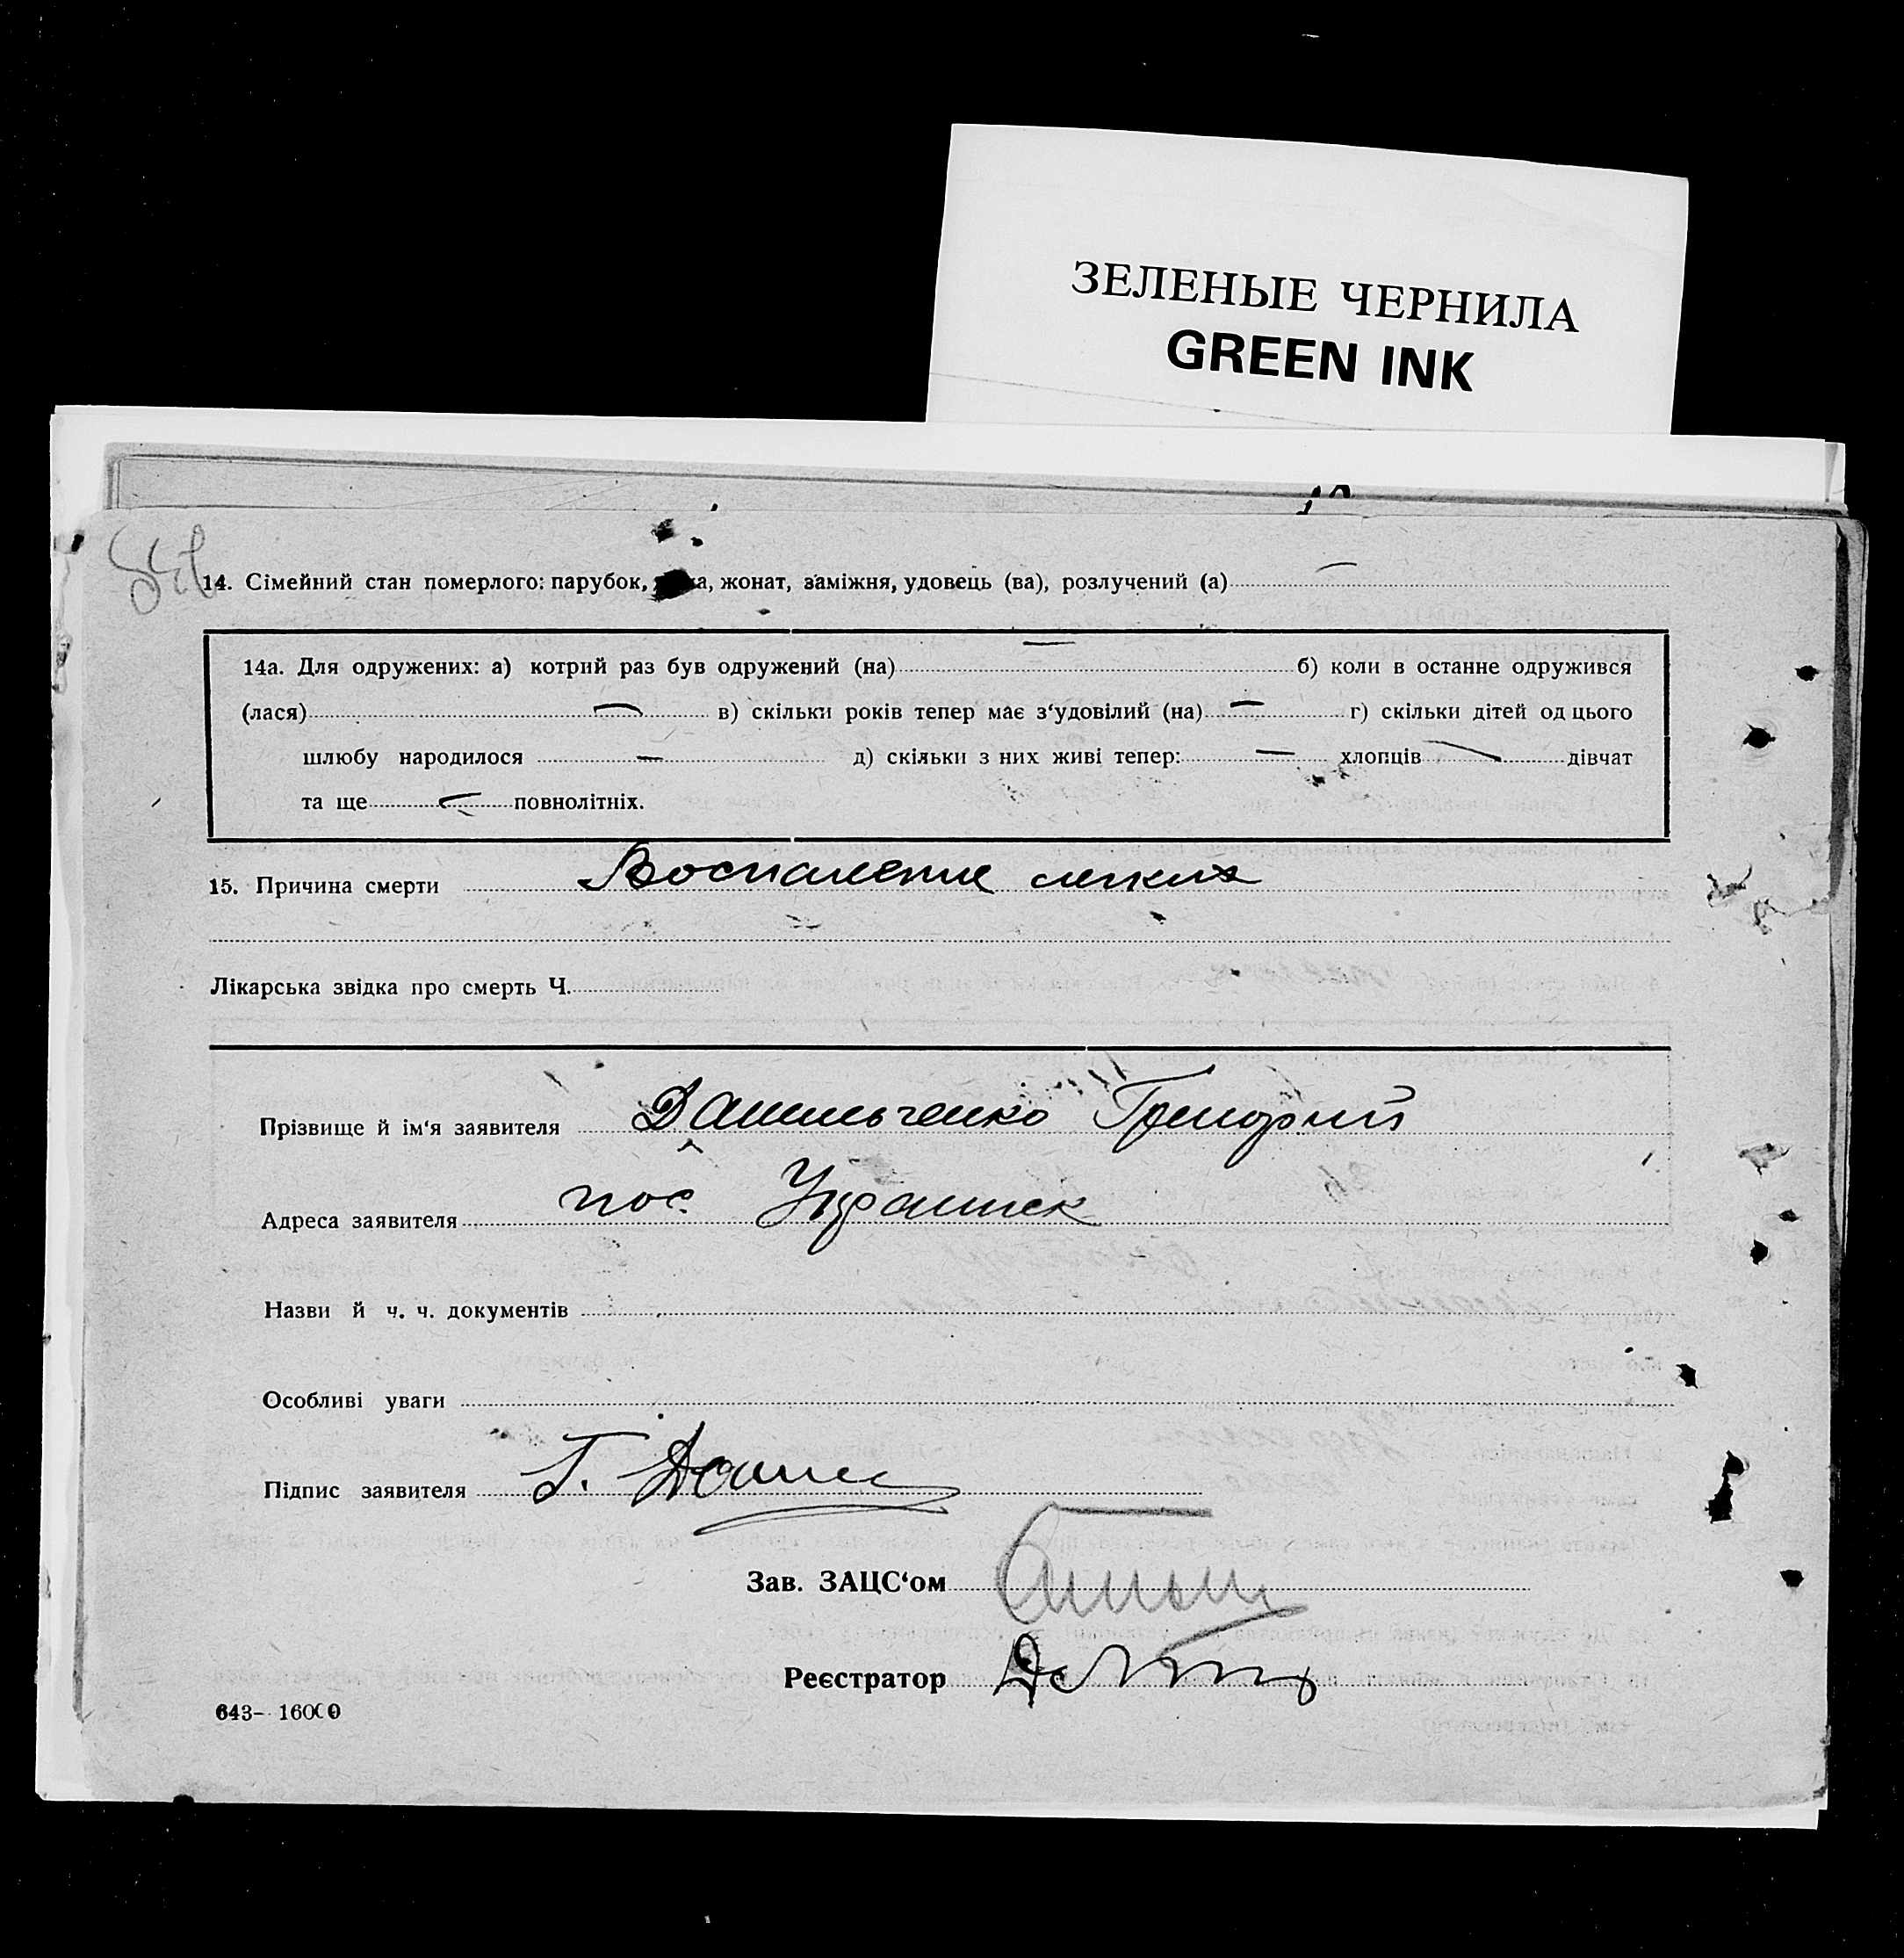 ЗЕЛЕНЫЕ ЧЕРНИЛА
GREEN INK
14. Сімейний стан померлого: парубок, жонат, заміжня, удовець (ва), розлучений (а)
14а. Для одружених: а) котрий раз був одружений (на) — б) коли в останне одружився
(лася) — в) скільки років тепер має з‘удовілий (на) — г) скільки дітей од цього
шлюбу народилося — д) скільки з них живі тепер: — хлопців — дівчат
та ще — повнолітніх.
15. Причина смерти Воспаление легких
Лікарська звідка про смерть Ч.
Прізвище й ім‘я заявителя Данильченко Григорий
Адреса заявителя пос. Украинск
Назви й ч. ч. документів
Особливі уваги
Підпис заявителя Г. Данил
Зав. ЗАЦС‘ом
Реєстратор
643- 16000